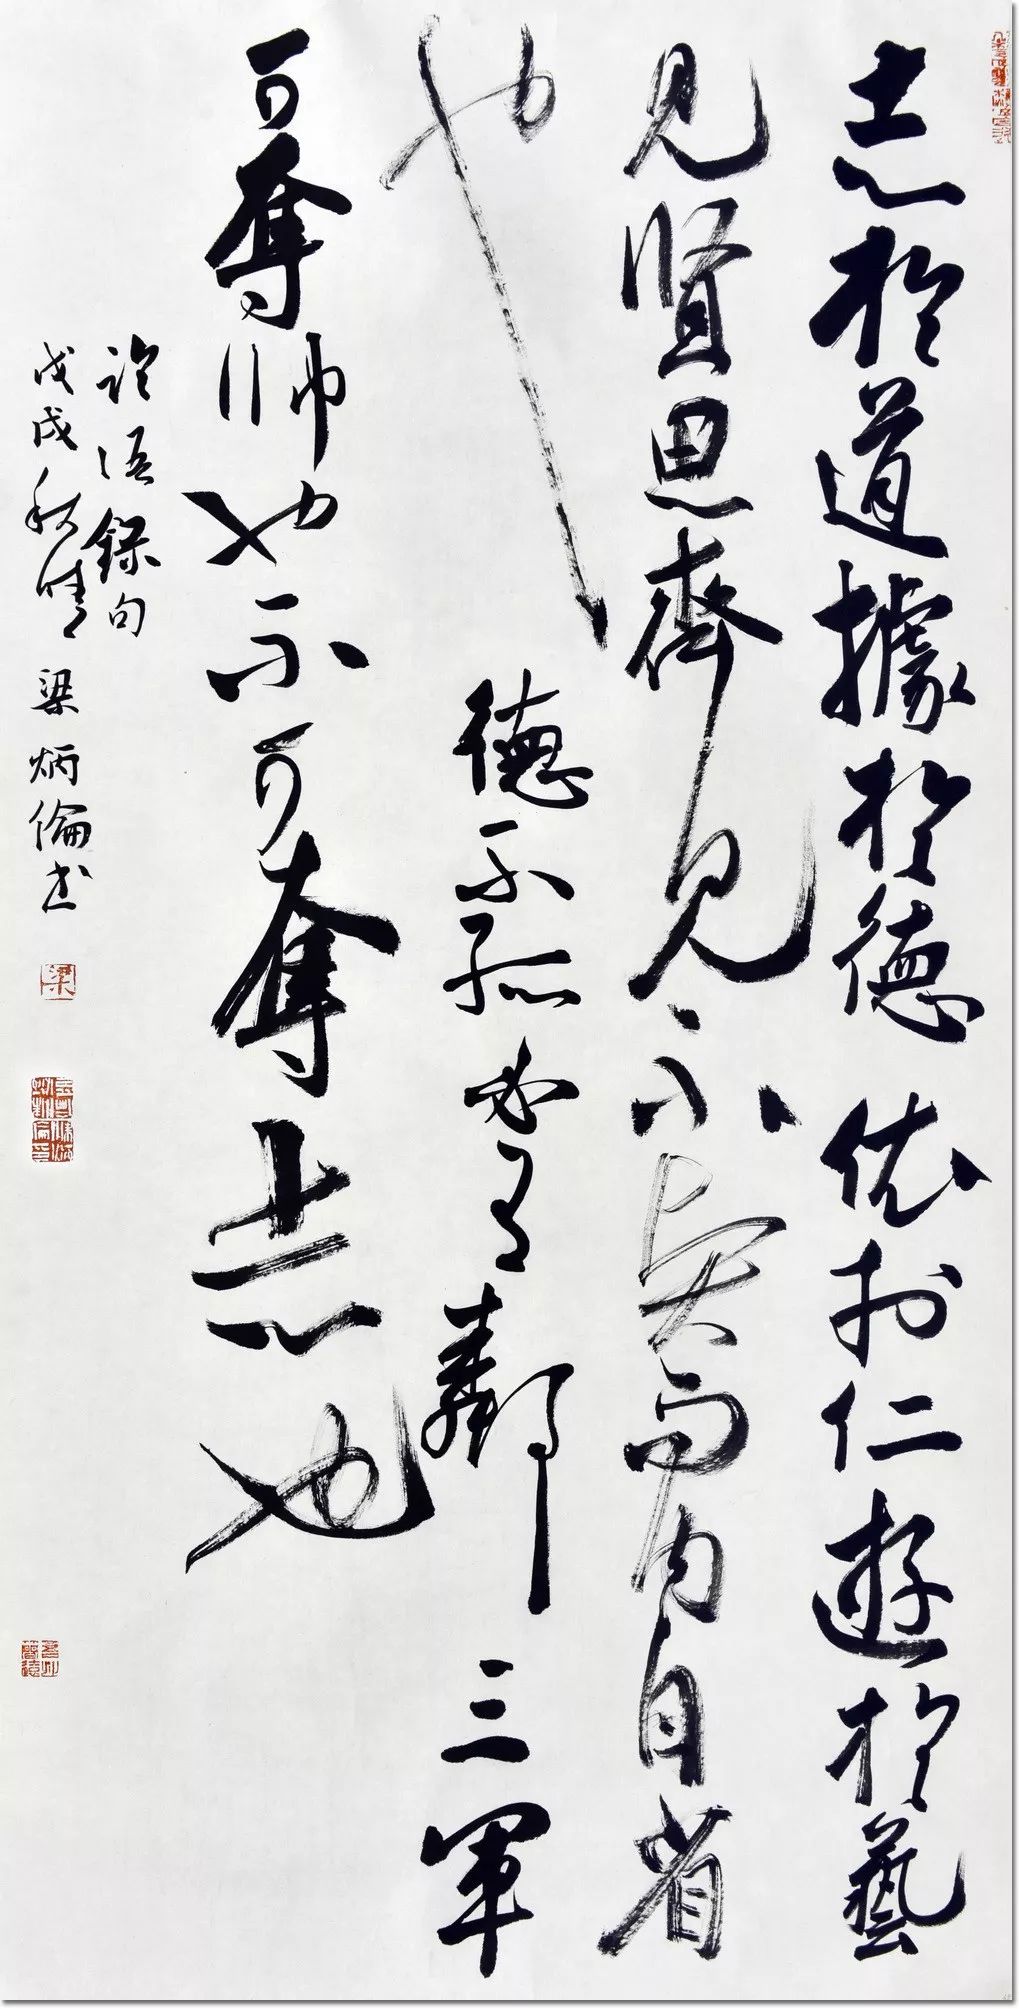 志於道據於德依於仁遊於藝
見賢思齊見不賢而內自省
也德不孤必有鄰三軍
可奪帥也不可奪志也
論語錄句
戊戌秋晴梁炳倫書
梁